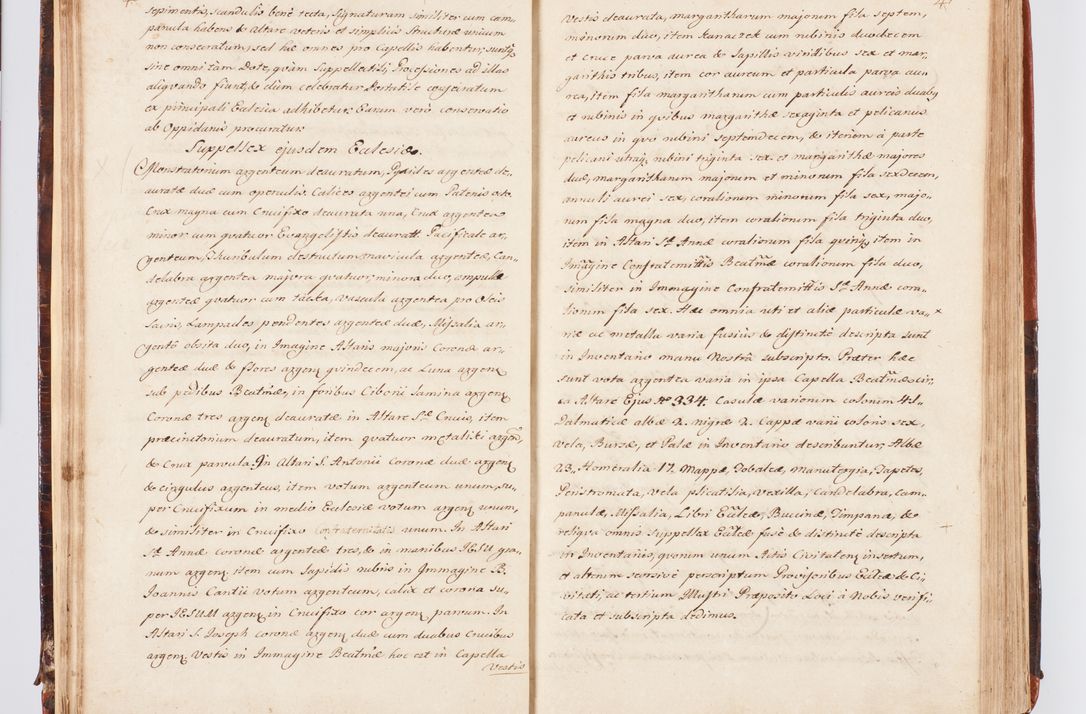 sepimentis, scandulis bene tecta, Signaturam similiter cum cam„
panula habens & Altare vetens et simplicis Structuræ unicum
non consecratum, sed hæ omnes pro Capellis habentur, suntq;
sine omni tam Dote, quàm Suppellectili, Processiones ad illas
aliquando fiunt, & dum celebratur
ex principali Ecclesia adhibetur. Earum verò conservatio
ab Oppidanis procuratur.
Suppellex ejusdem Ecclesiæ.
Monstratorium argenteum deauratum, Pyxides argenteæ de„
auratæ duæ cum operculis Calices argentei cum Patenis octo.
Crux magna cum Crucifixo deaurata una, Crux argentea
minor cum quatuor Evangelistis deaurata. Pacificale ar„
genteum, Thuribulum destructum, navicula argentea, Can„
delabra argentea majora quatuor, minora duo, ampullæ
argenteæ quatuor cum tacea, Vascula argentea pro Oleis
Sacris, Lampades pendentes argenteæ duæ, Missalia ar„
gentô obsita duo, in Imagine Altaris majoris Coronæ ar„
genteæ duæ & flores argenj quindecem, ac Luna argenj
sub pedibus Beatmæ, in foribus Ciborii Lamina argenj
Coronæ tres argenj deauratæ in Altare S. Crucis, item
præcinctorium deauratum, item quatuor metaliki argen
& Crux parvula. In Altari S. Antonii coronæ duæ argenj
& cingulus argenteus, item votum argenteum unum, su„
per Crucifixum in medio Ecclesiæ votum argenj unum,
& similiter in Crucifixo confraternitatis unum. In Altari
S. Annæ coronæ argenteæ tres, & in manibus IESU gra„
num argenj item cum lapidis rubris in Immagine B.
Joannis Cantii Votum argenteum, calix et corona su„
per IESUM argenj in Crucifixo cor argenj parvum. In
Altari S. Joseph coronæ argenj duæ cum duabus Crucibus
argenj Vestis in Immagine Beatmæ hoc est in Capella
Vestis
Vestis deaurata, margaritharum majorum fila septem,
minorum duo, item kanaczek cum rubinis duodecem
et cruce parva aurea & lapillis viridibus sex et mar„
garithis tribus, item cor aureum et particula parva au„
rea, Item fila margaritharum cum particulis aureis duabus
et rubinis in quibus margarithæ sexaginta et pelicanus
aureus in quô rubini Septemdecem, & iterum à parte
pelicani utraq; rubini triginta sex et margarithæ majores
duæ, margaritharum majorum et minorum fila sexdecem,
annuli aurei sex, coraliorum minorum fila sex, majo„
rum fila magna duo, item coraliorum fila triginta duo,
item in Altari S. Annæ coraliorum fila quinq; item in
Imagine Confraternittis Beatmæ coraliorum fila duo,
similiter in Immagine Confraternittis S. Annæ cora„
liorum fila sex. Hæc omnia uti et aliæ particulæ va„ ×
riæ ac metalla varia fusius & distinctè descripta sunt
in Inventario manu Nostrâ subscripto. Præter hæc
sunt vota argentea varia in ipsa Capella Beatmæ cir„
ca Altare Ejus No 334. Casulæ variorum colorum 41.
Dalmaticæ albæ 2. nigræ 2. Cappæ varii coloris sex,
Vela, Bursæ, et Palæ in Inventario describuntur, Albæ
23,, Homeralia 17. Mappæ, Tobaleæ, manutergia, Tapetes,
Peristromata, Vela plicatilia, Vexilla, Candelabra, cam„
panulæ, Missalia, Libri Eccleæ, Buccinæ, Timpana, &
reliqua omnis Suppellex Eccleæ fusè & distinctè descripta
in Inventariis, quorum unum Actis Civitaten insertum,
et alterum seorsivè perscriptum Provisoribus Eccleæ & Ci„
vitati, ac tertium Illustri Præposito Loci à Nobis verifi„
cata et subscripta dedimus.